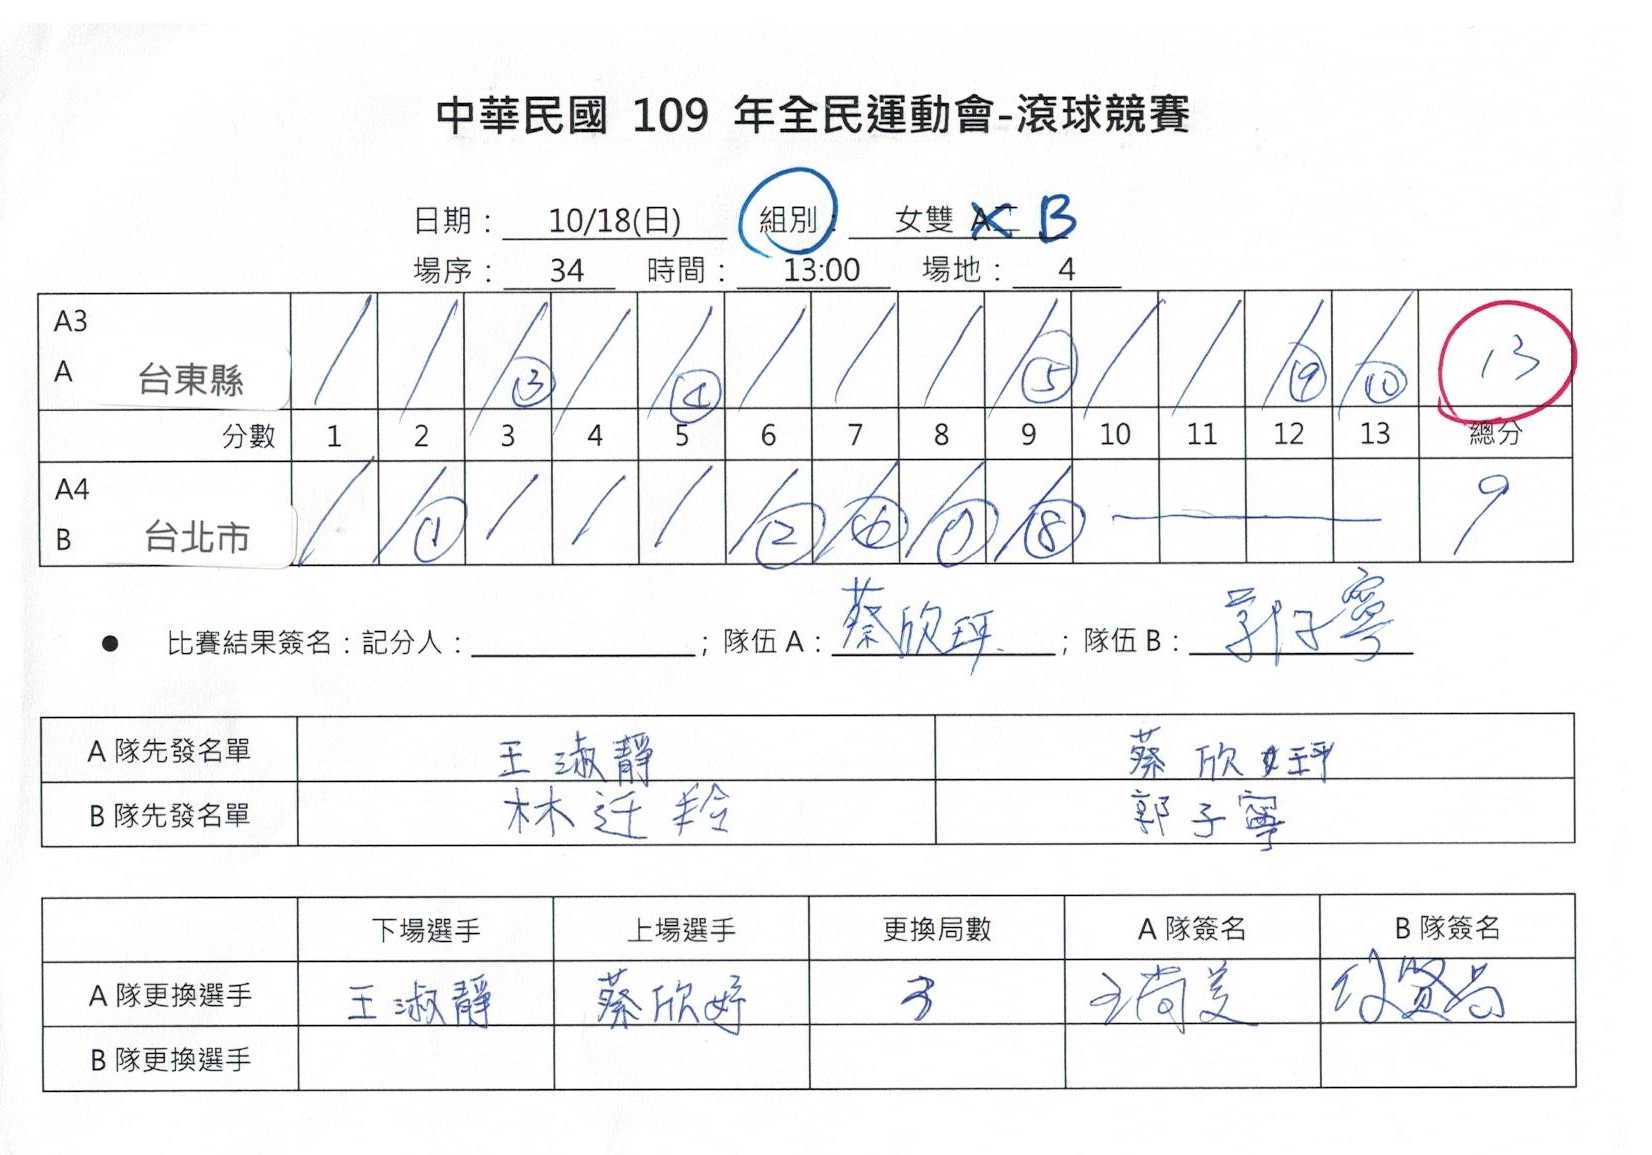 中華民國 109 年全民運動會-滾球競賽
日期： 10/18(日) 組別： 女雙 B
場序： 34 時間： 13:00 場地： 4
A3
A 台東縣 ③ ④ ⑤ ⑨ ⑩ 13
分數 1 2 3 4 5 6 7 8 9 10 11 12 13 總分
A4
B 台北市 ① ② ⑥ ⑦ ⑧ 9
● 比賽結果簽名：記分人： ；隊伍 A： 蔡欣 ；隊伍 B： 子寧
A 隊先發名單 王淑靜 蔡欣
B 隊先發名單 林 羚 郭子寧
下場選手 上場選手 更換局數 A 隊簽名 B 隊簽名
A 隊更換選手 王淑靜 蔡欣妤
B 隊更換選手